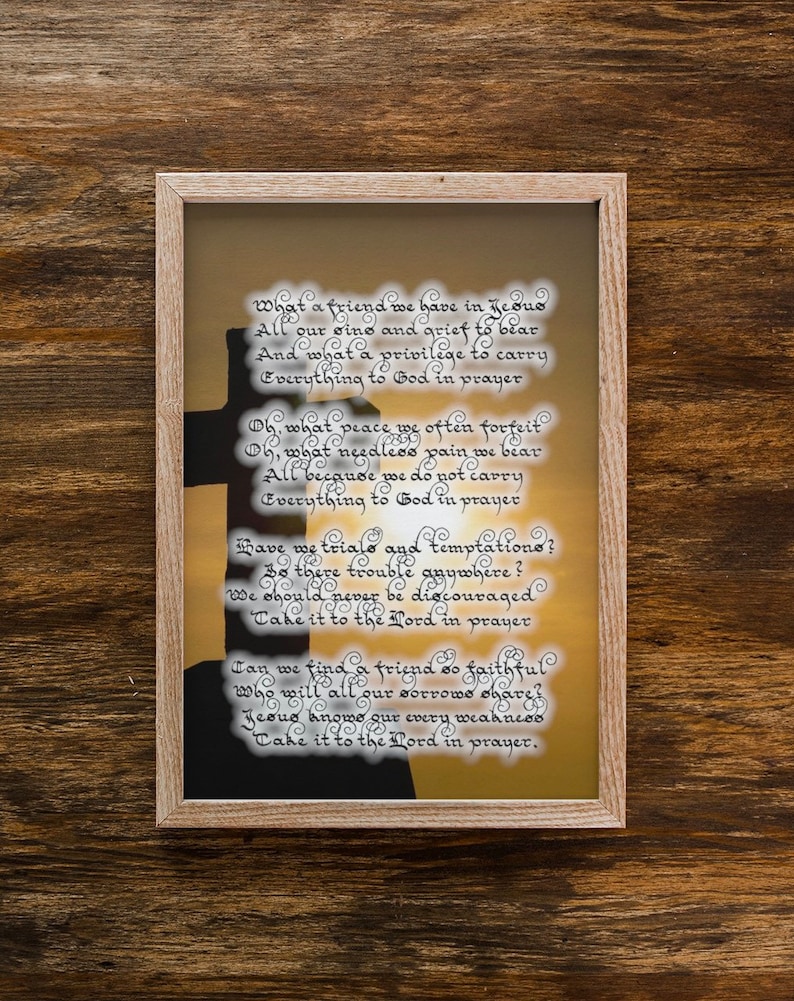 What a friend we have in Jesus
All our sins and grief to bear
And what a privilege to carry
Everything to God in prayer
Oh, what peace we often forfeit
Oh, what needless pain we bear
All because we do not carry
Everything to God in prayer
Have we trials and temptations?
Is there trouble anywhere?
We should never be discouraged
Take it to the Lord in prayer
Can we find a friend so faithful
Who will all our sorrows share?
Jesus knows our every weakness
Take it to the Lord in prayer.